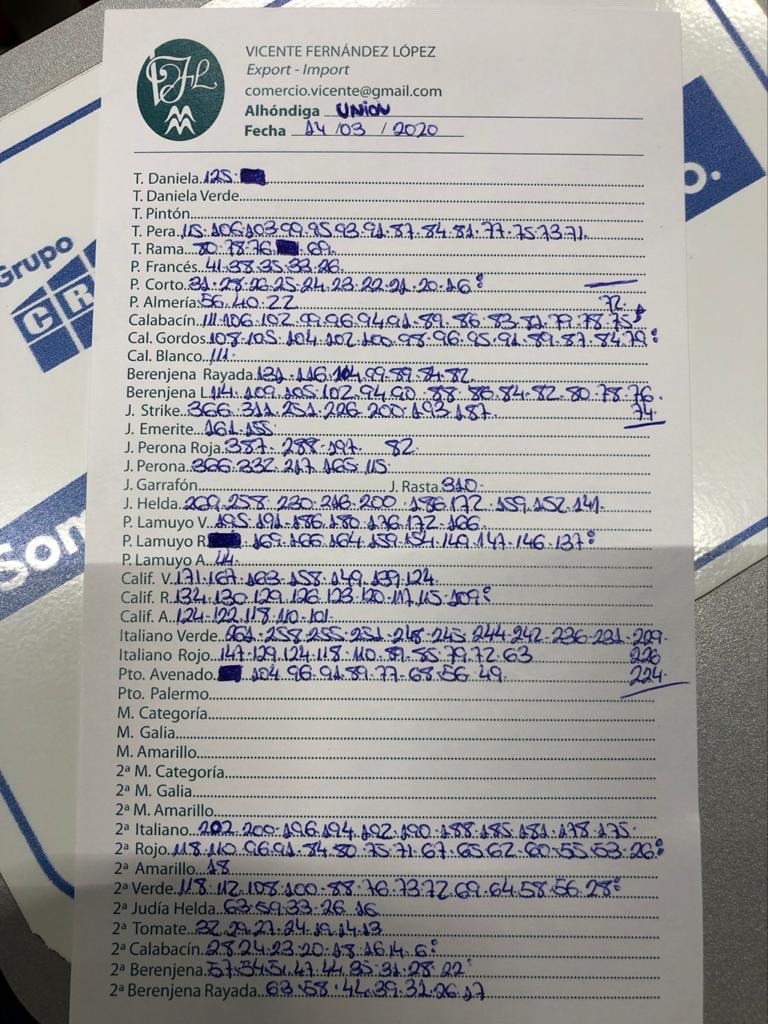 VICENTE FERNÁNDEZ LÓPEZ
Export - Import
comercio.vicente@gmail.com
Alhóndiga UNION
Fecha 14 / 03 / 2020
T. Daniela 125.
T. Daniela Verde
T. Pintón
T. Pera 115. 106.103.99.95.93.91.87.84.81.77.75.73.71.
T. Rama 80.78.76. 69.
P. Francés 41.38.35.33.26.
P. Corto 31.28.26.25.24.23.22.21.20.16.
P. Almería 56.40.22 72.
Calabacín 111.106.102.99.96.94.91.89.86.83.81.79.78.75
Cal. Gordos 108.105.104.102.100.98.96.95.91.89.87.84.79.
Cal. Blanco 111.
Berenjena Rayada 131.116.104.99.89.84.82.
Berenjena L 114.109.105.102.94.90.88.86.84.82.80.78.76.
J. Strike 366.311.251.226.200.193.187. 74.
J. Emerite 161.155.
J. Perona Roja 387.288.197. 82.
J. Perona 366.332.217.165.115.
J. Garrafón J. Rasta 310.
J. Helda 269.258.230.216.200.186.172.159.152.141.
P. Lamuyo V. 195.191.186.180.176.172.166.
P. Lamuyo R. 169.166.164.159.154.149.147.146.137.
P. Lamuyo A. 44.
Calif. V. 171.167.163.158.149.139.124.
Calif. R. 134.130.129.126.123.120.117.115.109.
Calif. A. 124.122.118.110.101.
Italiano Verde 261.258.255.251.248.245.244.242.236.231.229.
Italiano Rojo 147.129.124.118.110.89.85.79.72.63 226
Pto. Avenado 104.96.91.89.77.68.56.49. 224.
Pto. Palermo
M. Categoría
M. Galia
M. Amarillo
2ª M. Categoría
2ª M. Galia
2ª M. Amarillo
2ª Italiano 202.200.196.194.192.190.188.185.181.178.175.
2ª Rojo 118.110.96.91.84.80.75.71.67.65.62.60.55.53.26.
2ª Amarillo 18
2ª Verde 118.112.108.100.88.76.73.72.69.64.58.56.28.
2ª Judía Helda 63.59.33.26.16
2ª Tomate 32.29.27.24.19.14.13
2ª Calabacín 28.24.23.20.18.16.14.6.
2ª Berenjena 57.54.51.47.44.35.31.28.22.
2ª Berenjena Rayada 63.58.44.39.31.26.17
Grupo
Som
o.